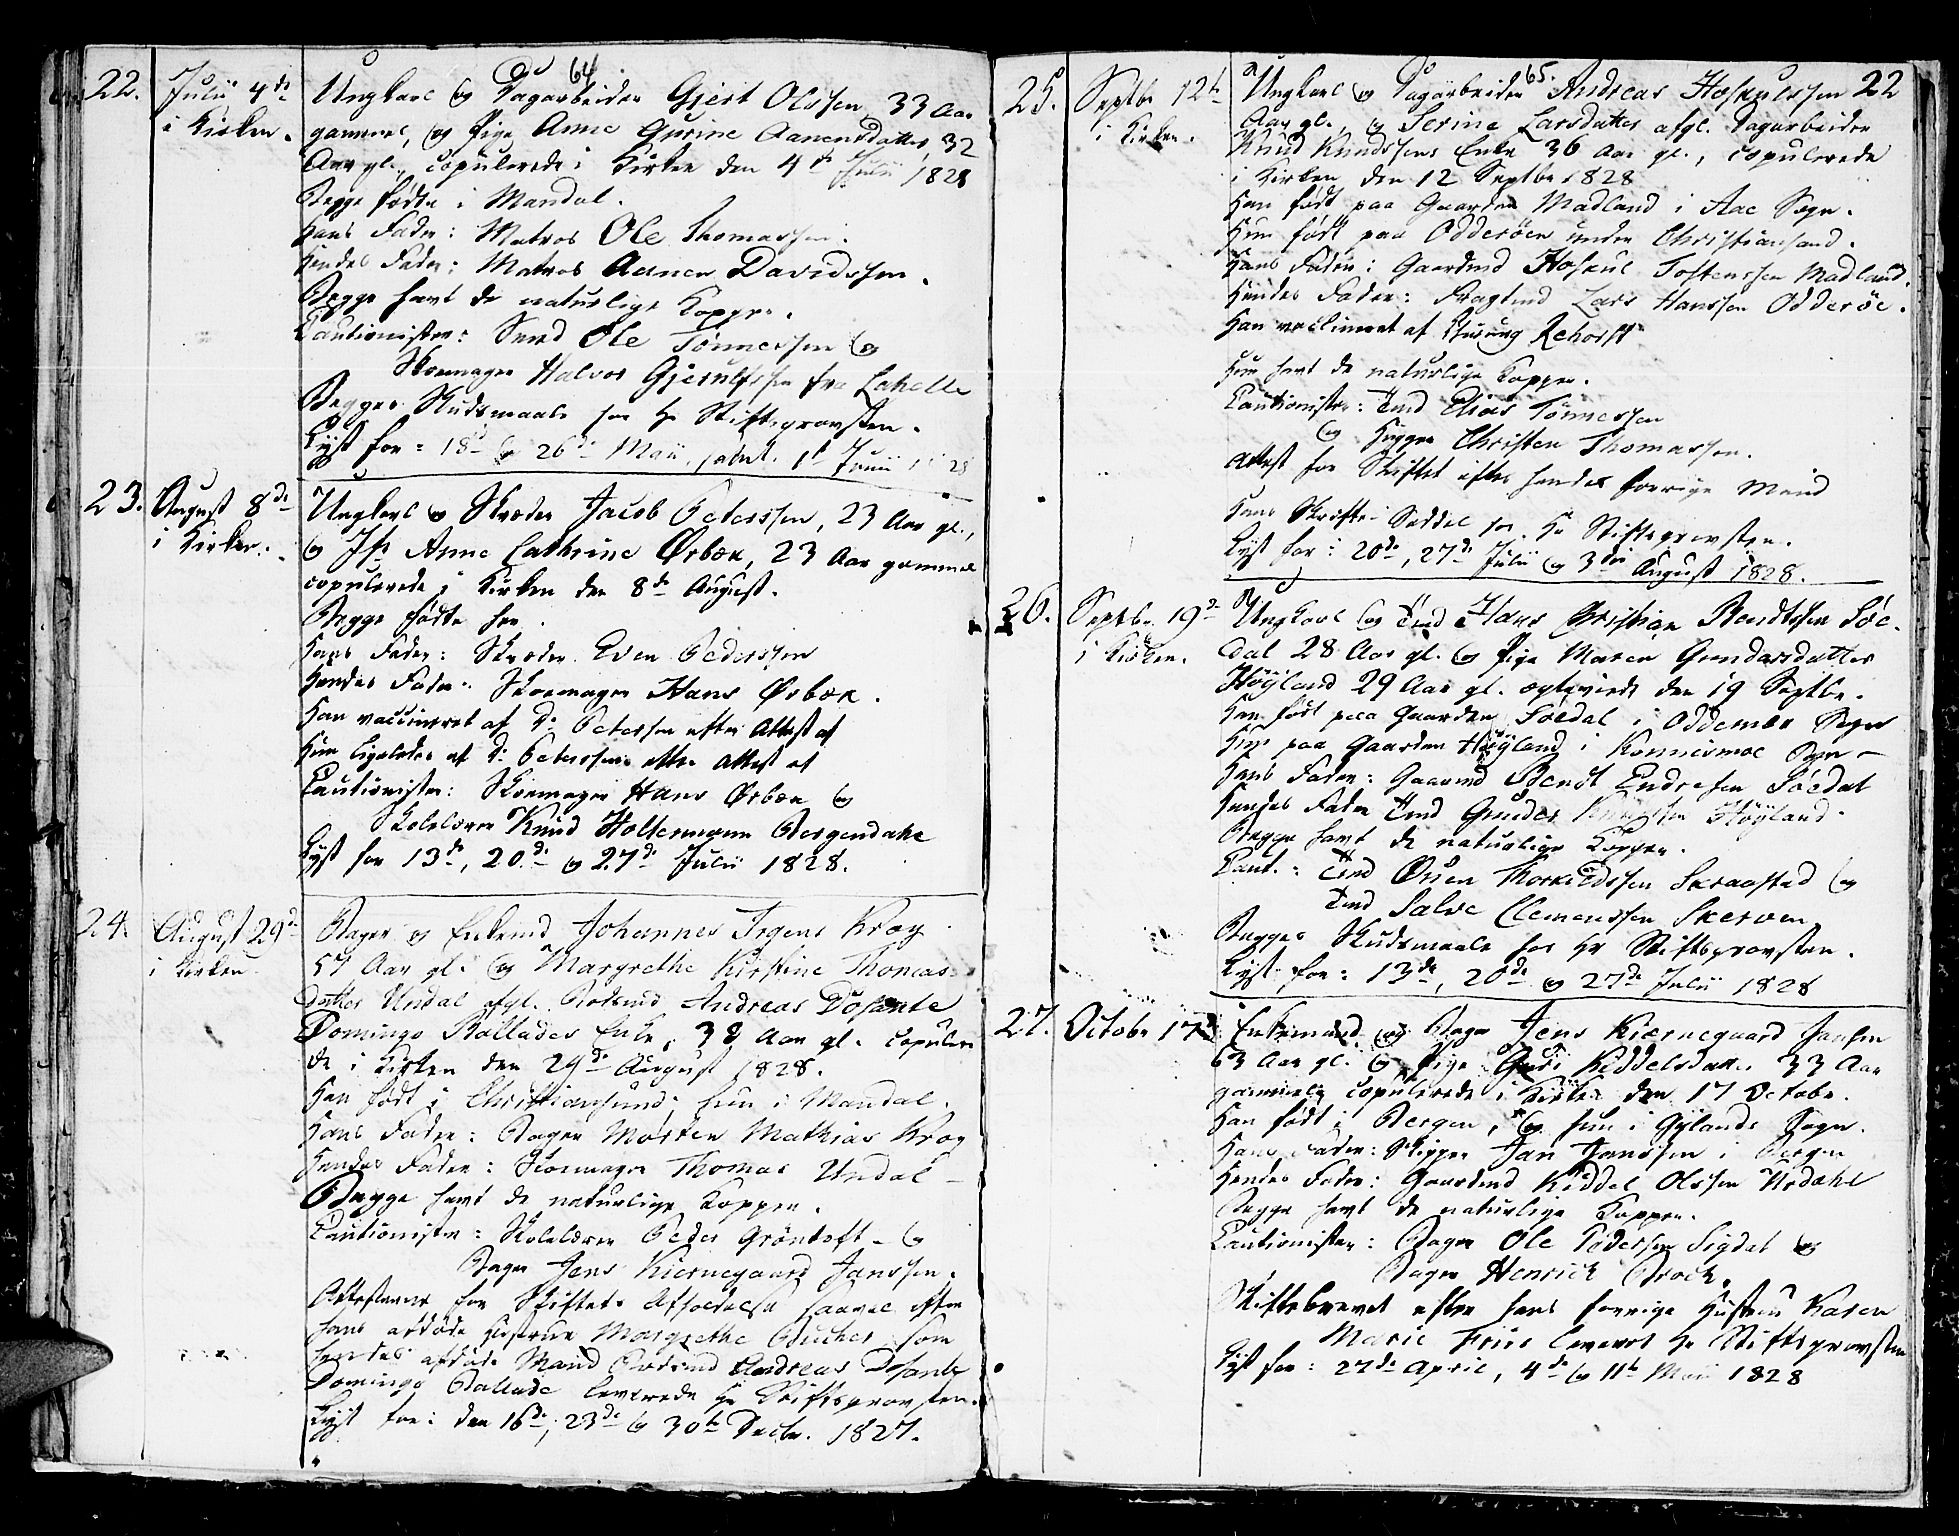 64.
22.
Julii 4de
i Kirken.
Ungkarl og Dagarbeider Gjert Olssen 33 Aar
gammel, og Pige Anne Gurine Aanensdatter, 32
Aar gl., copulerede i Kirken den 4de Julii 1828
Begge fødte i Mandal.
Hans Fader: Matros Ole Thomassen.
Hendes Fader: Matros Aanen Davidssen.
Begge havt de naturlige Kopper.
Cautionister: Smed Ole Tønnessen og
Skomager Halvor Gjerulfssen fra Lahelle
Begges Skudsmaale for Hr Stiftsprovsten.
Lyst for: 18de og 26de Maii, samt 1ste Junii 1828
23.
August 8de
i Kirken.
Ungkarl og Skræder Jacob Peterssen, 23 Aar gl.,
og Jfr Anne Cathrine Ørbæk, 23 Aar gammel
copulerede i Kirken den 8de August.
Begge fødte her.
Hans Fader: Skræder Even Pederssen
Hendes Fader: Skomager Hans Ørbæk.
Han vaccineret af Dr Petersen efter Attest af
Hun ligeledes af Dr Peterssen efter Attest af
Cautionister: Skomager Hans Ørbæk og
Skolelærer Knud Holtermann Bergendahl
Lyst for 13de, 20de og 27de Julii 1828.
24.
August 29de
i Kirken.
Bager og Enkemd Johannes Irgens Krog
57 Aar gl. og Margrethe Kirstine Thomas-
datter Undal afgl. Andreas Dosante
Domingo Ballades Enke, 38 Aar gl. copulere
de i Kirken den 29de August 1828.
Han født i Christiansund, hun i Mandal.
Hans Fader: Bager Morten Mathias Krog
Hendes Fader: Skomager Thomas Undal
Begge havt de naturlige Kopper.
Cautionister: Skolelærer Peder Gröntoft og
Bager Jens Kiernegaard Janssen.
Attesterne for Skiftets Afholdelse saavel efter
hans afdøde Hustrue Margrethe Bucher som
hendes afdøde Mand Andreas Dosante
Domingo Ballade leverede Hr Stiftsprovsten.
Lyst for: den 16de, 23de og 30te Decbr. 1827.
65.
22
25.
Septbr 12te
i Kirken.
Ungkarl og Dagarbeider Andreas Hoskulssen
Aar gl., og Serine Larsdatter afgl. Dagarbeider
Knud Knudssens Enke 36 Aar gl., copulerede
i Kirken den 12 Septbr 1828
Han født paa Gaarden Madland i Aae Sogn.
Hun født paa Odderøen under Christiansand.
Hans Fader: Gaardmd Hoskul Tostenssen Madland.
Hendes Fader: Fragtmd Lars Hanssen Odderøe.
Han vaccineret af Rehorst
Hun havt de naturlige Kopper.
Cautionister: Tmd Elias Tönnessen
og Hugger Christen Thomassen.
Attest for Skiftet efter hendes forrige Mand
Hans Skrifte-Seddel for Hr Stiftsprovsten.
Lyst for: 20de, 27de Julii og 3die August 1828.
26.
Septbr. 19de
i Kirken.
Ungkarl og Tmd Hans Christian Bendtssen Söe-
dal 28 Aar gl. og Pige Maren Gundersdatter
Höyland 29 Aar gl. ægteviede den 19 Septbr.
Han født paa Gaarden Söedal i Oddernæs Sogn
Hun paa Gaarden Höyland i Konnesmoe Sogn
Hans Fader: Gaardmd Bendt Endresen Söedal
Hendes Fader Tmd Gunder Höyland.
Begge havt de naturlige Kopper.
Caut.: Tmd Ösuen Thorkildssen Skraastad og
Tmd Salve Clemenssen Skerven
Begges Skudsmaale for Hr Stiftsprovsten.
Lyst for: 13de, 20de og 27de Julii 1828
27.
Octobr 17de
Enkemand og Bager Jens Kiærnegaard Jansen
63 Aar gl. og Pige Guri Keddelsdatter 33 Aar
gammel, copulerede i Kirken den 17 Octobr.
Han født i Bergen, og hun i Gylands Sogn.
Hans Fader: Skipper Jan Janssen i Bergen
Hendes Fader: Gaardmd Keddel Olssen Urdahl
Begge havt de naturlige Kopper.
Cautionister: Bager Ole Pederssen Sigdal og
Bager Henrich Brock.
Skiftebrevet efter hans forrige Hustru Karen
Marie Friis leveret Hr Stiftsprovsten
Lyst for: 27de April, 4de og 11te Maii 1828